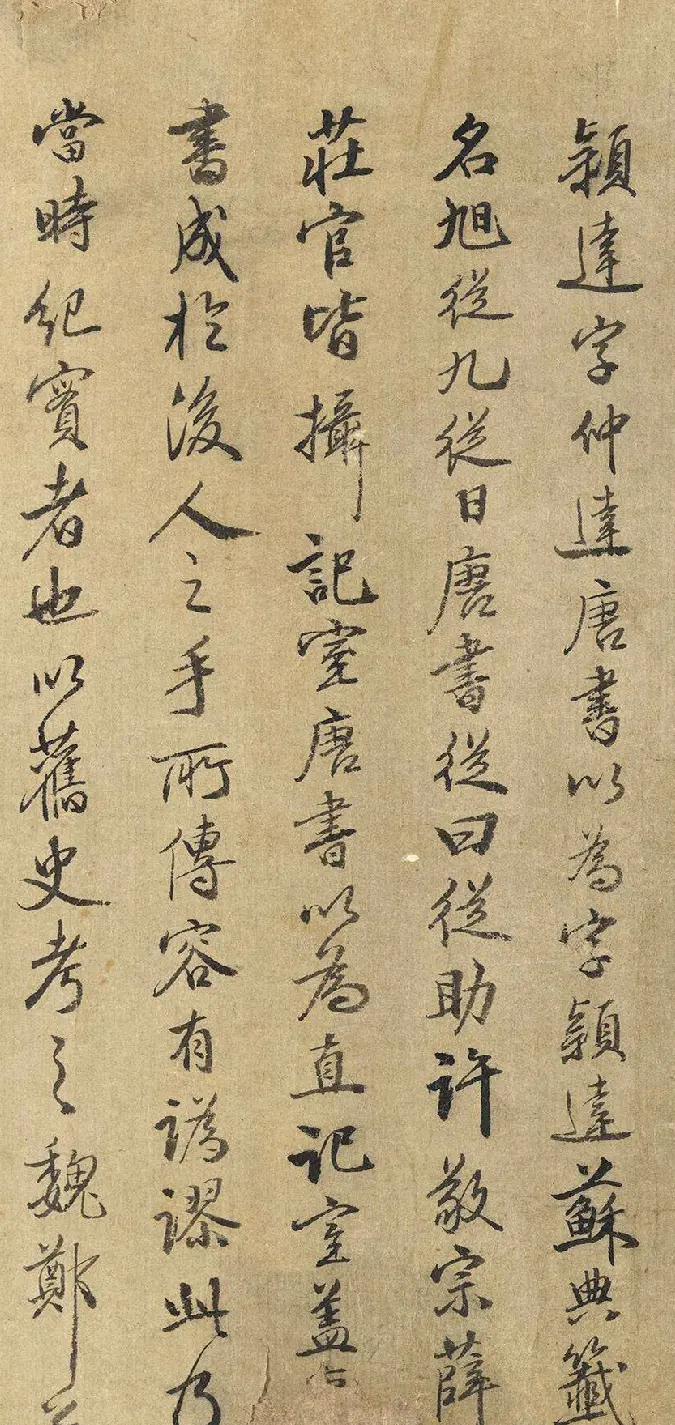 穎達字仲達唐書以為字穎達蘇典籤
名旭從九從日唐書從曰從助許敬宗薛
莊官皆攝記室唐書以為直記室蓋
書成於後人之手所傳容有譌謬此乃
當時紀實者也以舊史考之魏鄭